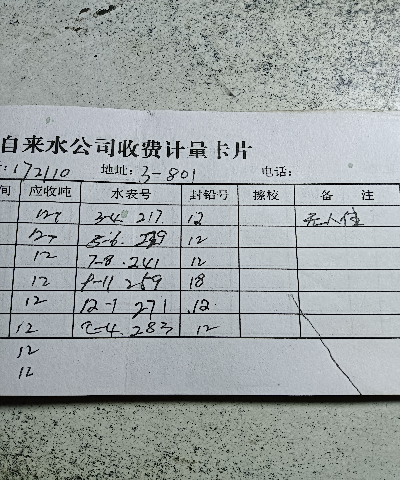 自来水公司收费计量卡片
:172110 地址:3-801 电话:
间 应收吨 水表号 封铅号 擦校 备 注
12T 3-4. 217 12 无人住
12T 5-6. 229 12
12 7-8.241 12
12 9-11 259 18
12 12-1 271 .12.
12 2-4.283 12
12
12